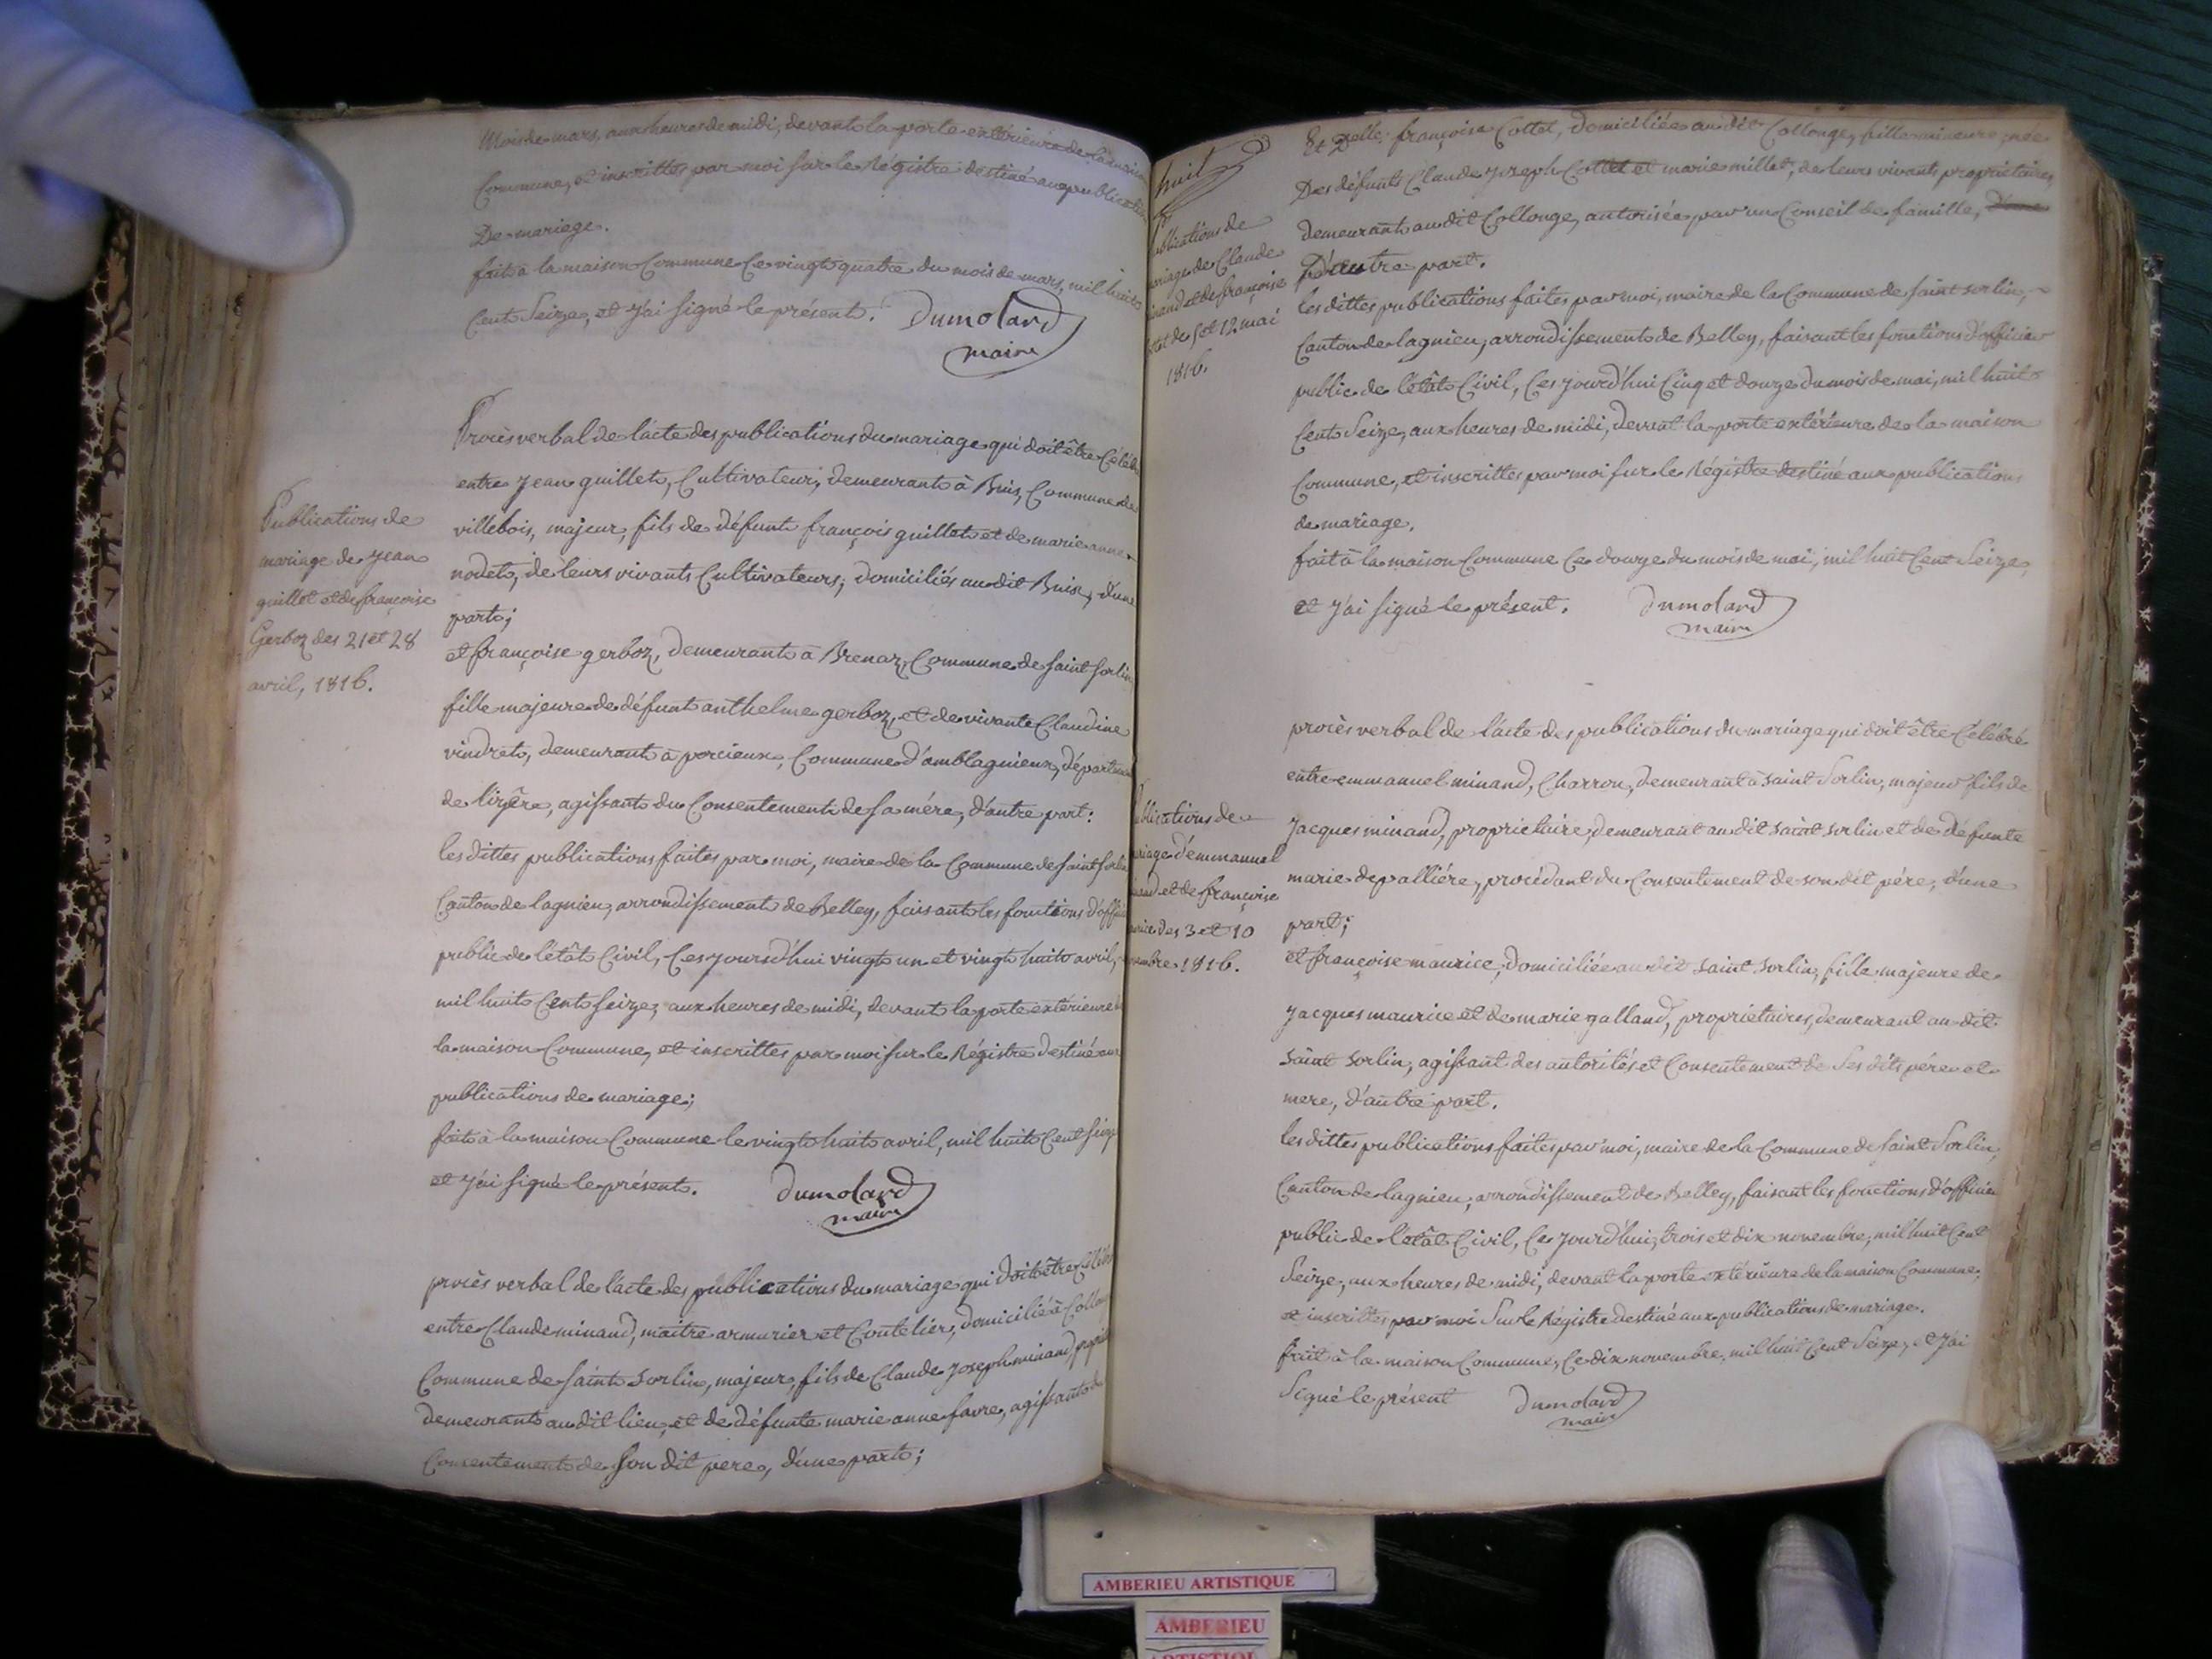 Mois de mars, aux heures de midi, devant la porte extérieure de la maison
Commune, et inscrittes par moi sur le Régistre destiné aux publications
De mariage.
fait à la maison Commune Ce vingt quatre du mois de mars, mil huit
Cent Seize, et j'ai signé le présent. Dumolard
maire
Publications de
mariage de jean
guillet et de françoise
Gerboz des 21 et 28
avril, 1816.
Procès verbal de l'acte des publications du mariage qui doit être Célébré
entre jean guillet, Cultivateur, demeurant à Buis, Commune de
villebois, majeur, fils de défunt françois guillet et de marie anne
nodet, de leurs vivants Cultivateurs, domiciliés au dit Buis, d'une
part;
et françoise gerboz, demeurant à Brenaz, Commune de saint sorlin
fille majeure de défunt anthelme gerboz, et de vivante Claudine
vindret, demeurant à porcieux, Commune d'amblagnieux, départ
de lizère, agissant du Consentement de sa mére, d'autre part:
les dittes publications faites par moi, maire de la Commune de saint sorlin
Canton de lagnieu, arrondissement de Belley, faisant les fonctions d'offi
public de l'état Civil, Ces jourd'hui vingt un et vingt huit avril,
mil huit Cent seize, aux heures de midi, devant la porte extérieure
la maison Commune, et inscrittes par moi sur le Régistre destiné aux
publications de mariage;
fait à la maison Commune le vingt huit avril, mil huit Cent seize
et j'ai signé le présent. Dumolard
maire
procès verbal de l'acte des publications du mariage qui doit être Célébré
entre Claude minand, maitre armurier et Coutelier, domicilié à Collong
Commune de saint sorlin, majeur, fils de Claude joseph minand, propri
demeurant au dit lieu, et de défunte marie anne favre, agissant du
Consentement de son dit pere, d'une part;
huit
ublications de
ariage de Claude
inand et de françoise
ttet des 5 et 12 mai
1816.
Et Delle. françoise Cottet, domiciliée au dit Collonge, fille mineure, née
Des défunts Claude joseph Cottet et marie millet, de leurs vivants propriétaires,
demeurant au dit Collonge, autorisée par un Conseil de famille, d'une
D'autre part.
les dittes publications faites par moi, maire de la Commune de saint sorlin,
Canton de lagnieu, arrondissement de Belley, faisant les fonctions d'officier
public de l'état Civil, Ces jourd'hui Cinq et douze du mois de mai, mil huit
Cent Seize, aux heures de midi, devant la porte extérieure de la maison
Commune, et inscrittes par moi sur le Régistre destiné aux publications
de mariage.
fait à la maison Commune Ce douze du mois de mai, mil huit Cent Seize,
et j'ai signé le présent. Dumolard
maire
ublications de
riage d'emmanuel
inand et de françoise
urice des 3 et 10
vembre 1816.
procès verbal de l'acte des publications du mariage qui doit être Célébré
entre emmanuel minand, Charron, demeurant à saint Sorlin, majeur fils de
jacques minand, propriétaire, demeurant au dit saint sorlin et de défunte
marie depalliére, procédant du Consentement de son dit pére, d'une
part;
et françoise maurice, domiciliée au dit saint sorlin, fille majeure de
jacques maurice et de marie galland, propriétaires, demeurant au dit
saint sorlin, agissant des autorités et Consentement de Ses dits pére et
mere, d'autre part.
les dittes publications faites par moi, maire de la Commune de saint Sorlin,
Canton de lagnieu, arrondissement de Belley, faisant les fonctions d'officier
public de l'état Civil, Ce jourd'hui, trois et dix novembre, mil huit Cent
Seize, aux heures de midi, devant la porte extérieure de la maison Commune,
et inscrittes par moi Sur le Régistre destiné aux publications de mariage.
fait à la maison Commune, Ce dix novembre, mil huit Cent Seize, et j'ai
Signé le présent Dumolard
maire
AMBERIEU ARTISTIQUE
AMBERIEU
ARTISTIQUE